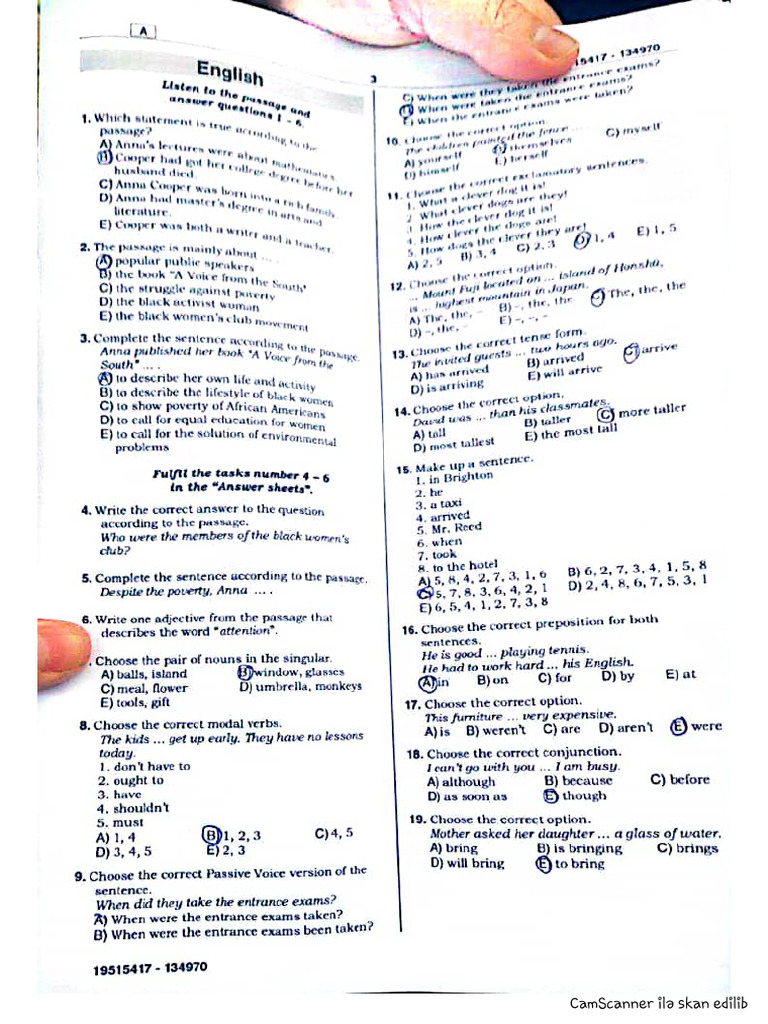 A
English
Listen to the passage and
answer questions 1 - 6.
1. Which statement is true according to the
passage?
A) Anna's lectures were about mathematics
B) Cooper had got her college degree before her
husband died.
C) Anna Cooper was born into a rich family.
D) Anna had master's degree in arts and
literature.
E) Cooper was both a writer and a teacher.
2. The passage is mainly about ... .
A) popular public speakers
B) the book "A Voice from the South"
C) the struggle against poverty
D) the black activist woman
E) the black women's club movement
3. Complete the sentence according to the passage.
Anna published her book "A Voice from the
South" ... .
A) to describe her own life and activity
B) to describe the lifestyle of black women
C) to show poverty of African Americans
D) to call for equal education for women
E) to call for the solution of environmental
problems
Fulfil the tasks number 4 - 6
in the "Answer sheets".
4. Write the correct answer to the question
according to the passage.
Who were the members of the black women's
club?
5. Complete the sentence according to the passage.
Despite the poverty, Anna ... .
6. Write one adjective from the passage that
describes the word "attention".
. Choose the pair of nouns in the singular.
A) balls, island B) window, glasses
C) meal, flower D) umbrella, monkeys
E) tools, gift
8. Choose the correct modal verbs.
The kids ... get up early. They have no lessons
today.
1. don't have to
2. ought to
3. have
4. shouldn't
5. must
A) 1, 4 B) 1, 2, 3 C) 4, 5
D) 3, 4, 5 E) 2, 3
9. Choose the correct Passive Voice version of the
sentence.
When did they take the entrance exams?
A) When were the entrance exams taken?
B) When were the entrance exams been taken?
19515417 - 134970
3
15417 - 134970
C) When were they taken the entrance exams?
D) When were taken the entrance exams?
E) When the entrance exams were taken?
10. Choose the correct option.
The children painted the fence ...
A) yourself B) themselves C) myself
D) himself E) herself
11. Choose the correct exclamatory sentences.
1. What a clever dog it is!
2. What clever dogs are they!
3. How the clever dog it is!
4. How clever the dogs are!
5. How dogs the clever they are!
A) 2, 5 B) 3, 4 C) 2, 3 D) 1, 4 E) 1, 5
12. Choose the correct option.
... Mount Fuji located on ... island of Honshu,
is ... highest mountain in Japan.
A) The, the, - B) -, the, the C) The, the, the
D) -, the, - E) -, -, -
13. Choose the correct tense form.
The invited guests ... two hours ago.
A) has arrived B) arrived C) arrive
D) is arriving E) will arrive
14. Choose the correct option.
David was ... than his classmates.
A) tall B) taller C) more taller
D) most tallest E) the most tall
15. Make up a sentence.
1. in Brighton
2. he
3. a taxi
4. arrived
5. Mr. Reed
6. when
7. took
8. to the hotel
A) 5, 8, 4, 2, 7, 3, 1, 6 B) 6, 2, 7, 3, 4, 1, 5, 8
C) 5, 7, 8, 3, 6, 4, 2, 1 D) 2, 4, 8, 6, 7, 5, 3, 1
E) 6, 5, 4, 1, 2, 7, 3, 8
16. Choose the correct preposition for both
sentences.
He is good ... playing tennis.
He had to work hard ... his English.
A) in B) on C) for D) by E) at
17. Choose the correct option.
This furniture ... very expensive.
A) is B) weren't C) are D) aren't E) were
18. Choose the correct conjunction.
I can't go with you ... I am busy.
A) although B) because C) before
D) as soon as E) though
19. Choose the correct option.
Mother asked her daughter ... a glass of water.
A) bring B) is bringing C) brings
D) will bring E) to bring
CamScanner ilə skan edilib